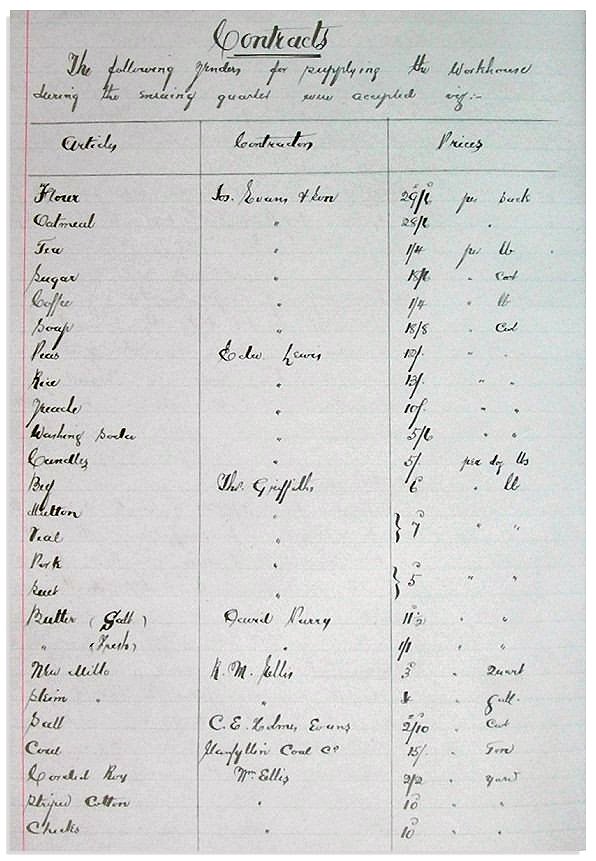 Contracts
The following Tenders for supplying the Workhouse
during the ensuing quarter were accepted viz:-
Articles Contractors Prices
Flour Jos. Evans & Son 29/6 per sack
Oatmeal " 28/6 "
Tea " 1/4 per lb
Sugar " 18/6 " Cwt
Coffee " 1/4 " lb
Soap " 18/8 " Cwt
Peas Edw Lewis 12/- " "
Rice " 13/- " "
Treacle " 10/- " "
Washing Soda " 5/6 " "
Candles " 5/- per doz lbs
Beef Thos. Griffiths 6 " lb
Mutton "
} 7 " "
Veal "
Pork "
} 5 " "
Suet "
Butter (Salt) David Parry 11½ " "
" (Fresh) " 1/1 " "
New Milk R. M. Ellis 3 " Quart
Skim " " 4 " Gall.
Salt C. E. Holmes Evans 2/10 " Cwt
Coal Llanfyllin Coal Co 15/- " Ton
Corded Roy Wm Ellis 2/2 " Yard
Striped Cotton " 10 " "
Checks " 10 " "